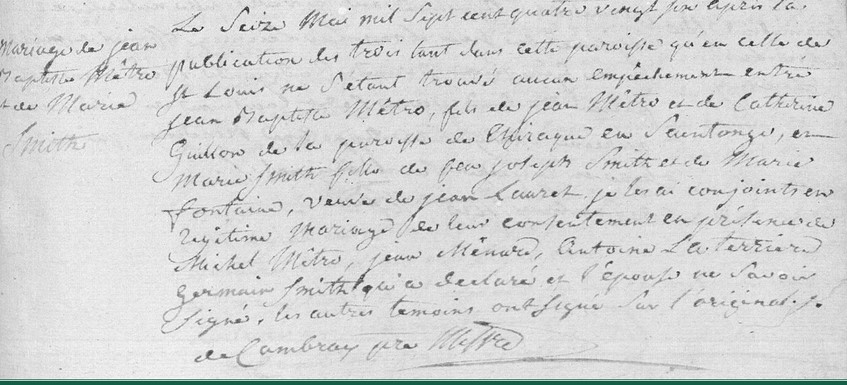 Mariage de jean
Baptiste Métro
et de Marie
Smith
Le Seize Mai mil Sept cent quatre vingt six après la
publication des trois tant dans cette paroisse qu'en celle de
St Louis ne S'étant trouvé aucun empêchement entre
Jean Baptiste Métro, fils de jean Métro et de Catherine
Guillon de la paroisse de en Saintonge, et
Marie Smith fille de feu joseph Smith et de Marie
fontaine, veuve de jean Lauret, je les ai conjoints en
légitime Mariage de leur consentement en présence de
Michel Métro, jean Ménard, Antoine La terriere
germain Smith qui a declaré et l'épouse ne Savoir
Signé, les autres temoins ont Signé Sur l'original.
de Cambray pre